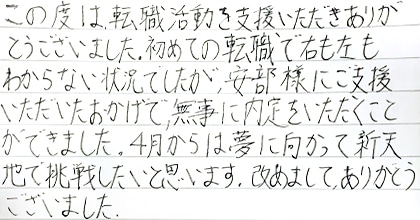 この度は、転職活動を支援いただきありが
とうございました。初めての転職で右も左も
わからない状況でしたが、安部様にご支援
いただいたおかげで、無事に内定をいただくこと
ができました。4月からは夢に向かって新天
地で挑戦したいと思います。改めまして、ありがとう
ございました。